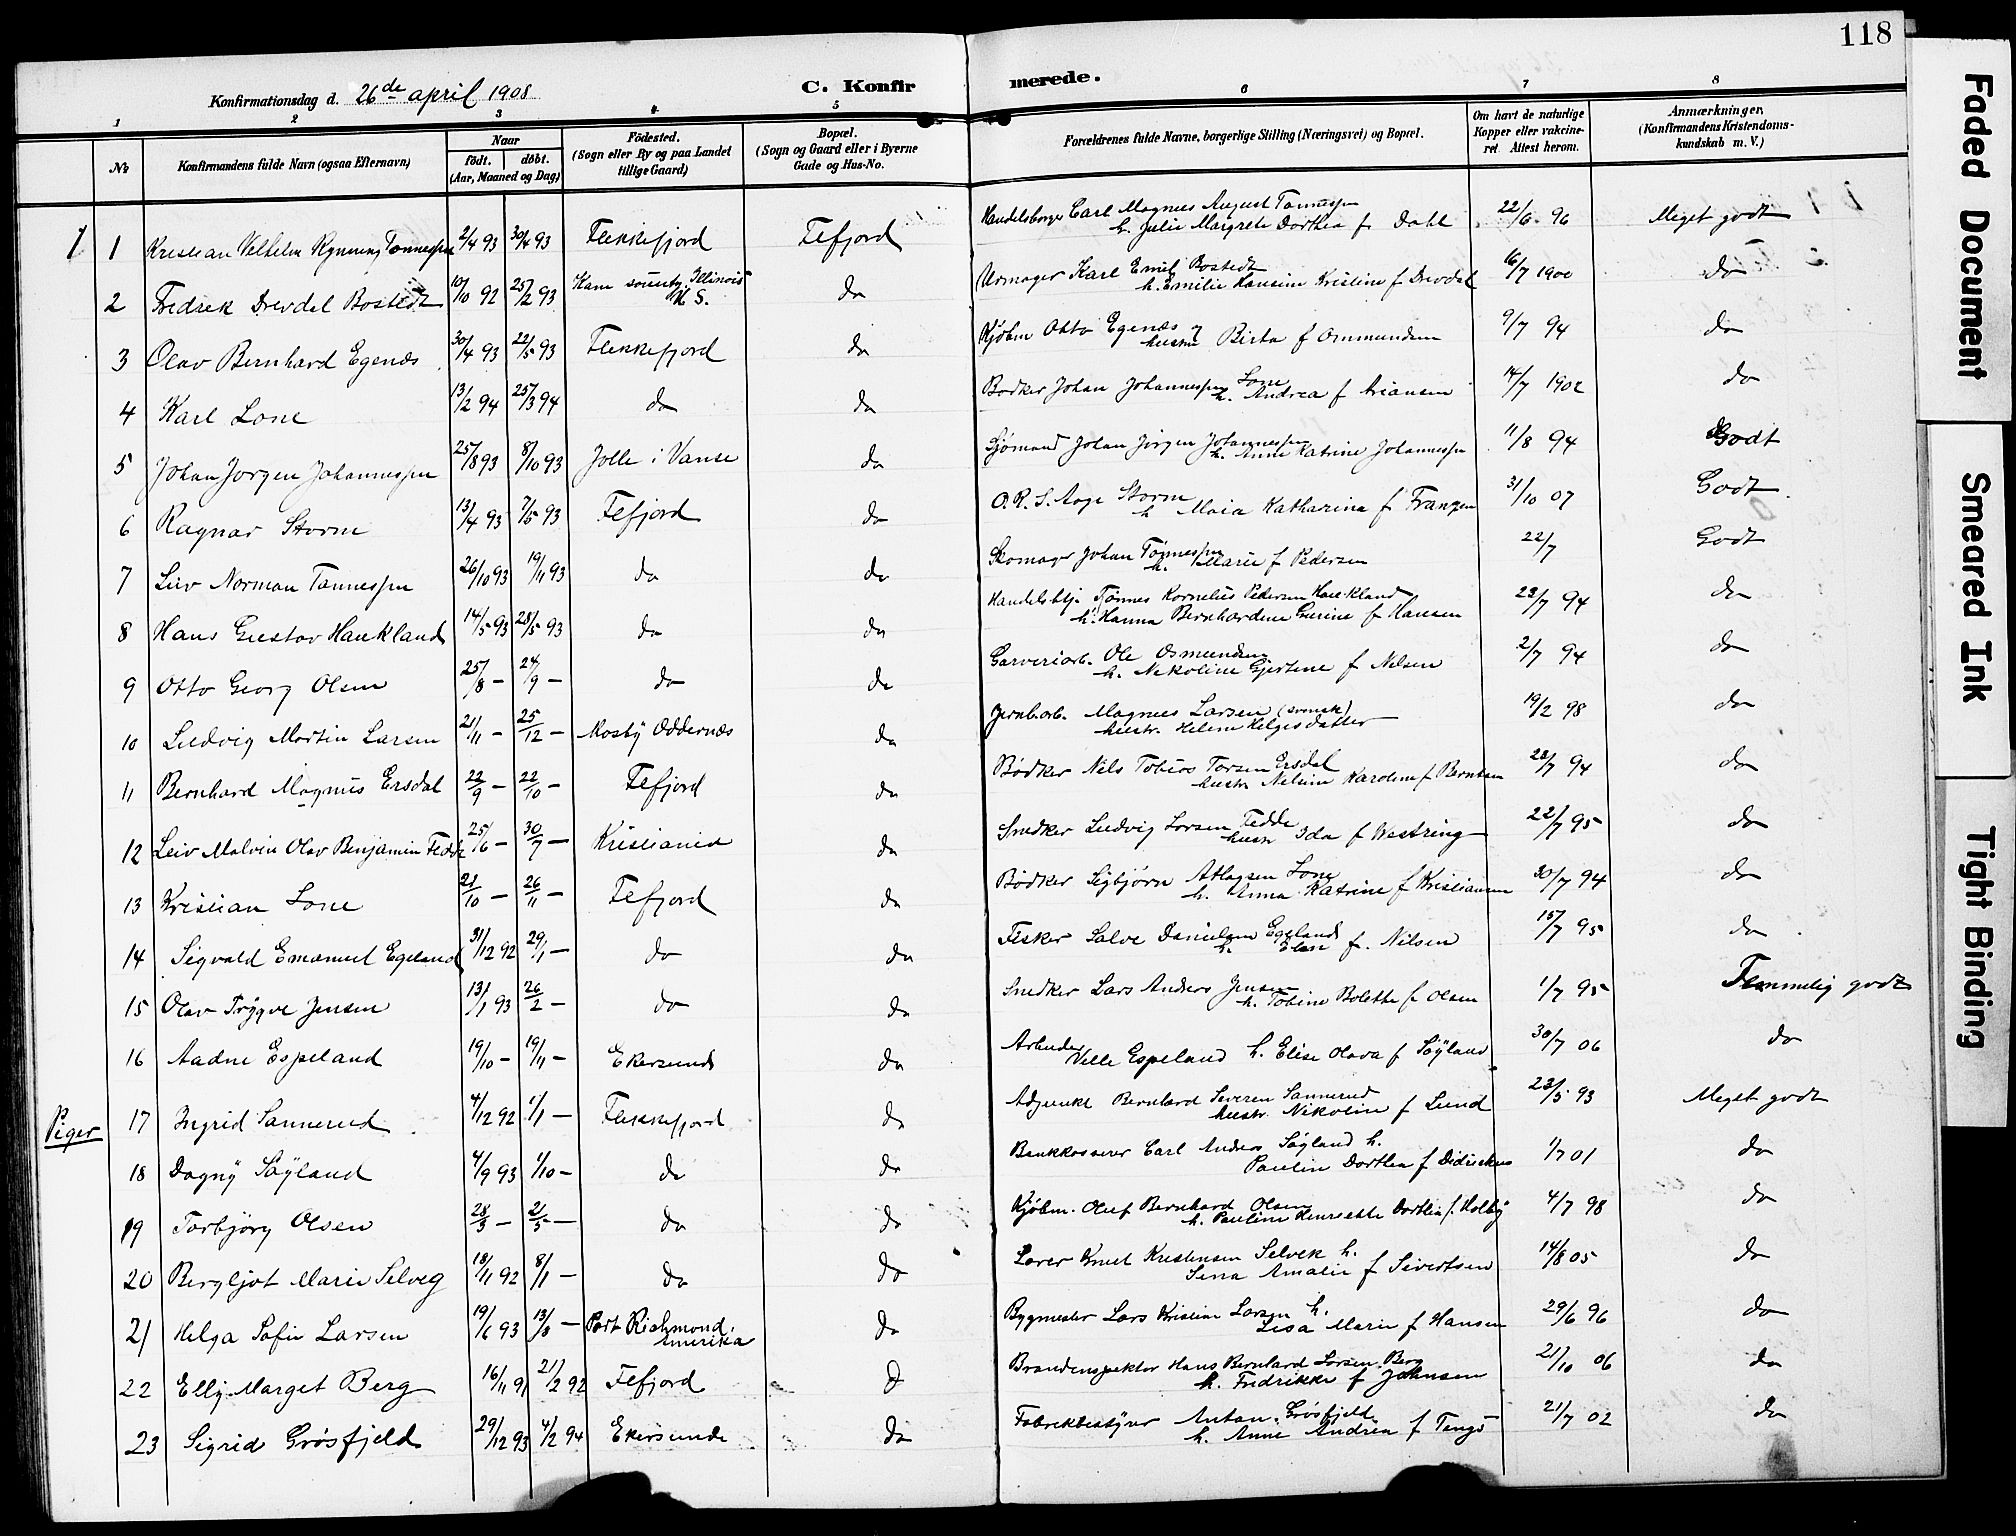 118
Konfirmationsdag d. 26de april 1908
C. Konfirmerede.
1 2 3 4 5 6 7 8
№
Konfirmandens fulde Navn (ogsaa Efternavn)
Naar
födt. döbt.
(Aar, Maaned og Dag)
Födested.
(Sogn eller By og paa Landet
tillige Gaard)
Bopæl.
(Sogn og Gaard eller i Byerne
Gade og Hus-No.
Forældrenes fulde Navne, borgerlige Stilling (Næringsvei) og Bopæl.
Om havt de naturlige
Kopper eller vakcine-
ret. Attest herom.
Anmærkninger,
(Konfirmandens Kristendoms-
kundskab m. V.)
1 Kristian Vilhelm Rynning Tønnessen 2/4 93 30/4 93 Flekkefjord Fefjord Handelsborger Carl Magnus August Tønnessen 22/6 96 Meget godt
h. Julie Margrete Dorthea f Dahl
2 Fredrik Drevdel Bostedt 10/10 92 25/2 93 Kane county Illinois do Urmager Karl Emil Bostedt 16/7 1900 do
h. Emilie Hansine Kristine f Drevdal
3 Olav Bernhard Egenæs 30/4 93 22/5 93 Flekkefjord do Kjøbm Otto Egenæs og 9/7 94 do
hustru Birta f Ommundsen
4 Karl Lone 13/2 94 25/3 94 do do Bødker Johan Johannessen Lone 14/7 1902 do
h. Andrea f Ariansen
5 Johan Jørgen Johannessen 25/8 93 8/10 93 Jolle i Vanse do Sjømand Johan Jørgen Johannessen 11/8 94 Godt
h. Anne Katrine Johannessen
6 Ragnar Storm 13/4 93 7/5 93 Fefjord do O.R.S. Aage Storm 31/10 07 Godt
h Maia Katharina f Franzen
7 Leiv Norman Tønnessen 26/10 93 19/11 93 do do Skomager Johan Tønnessen 22/7 Godt
h. Marie f Pedersen
8 Hans Gustav Haukland 14/5 93 28/5 93 do do Handelsbtj. Tønnes Kornelius Pedersen Haukland 23/7 94 do
h. Hanna Bernhardine Gurine f Hansen
9 Otto Georg Olsen 25/8 - 24/9 - do do Garveriarb. Ole Osmundsen 2/7 94 do
h. Nikoline Gjertine f Nilsen
10 Ludvig Martin Larsen 21/11 - 25/12 - Mosby Oddernæs do Jernb.arb. Magnus Larsen (svensk) 19/2 98 do
hustr. Helene Helgesdatter
11 Bernhard Magnus Ersdal 22/9 - 22/10 - Fefjord do Bødker Nils Tobias Torsen Ersdal 28/7 94 do
hustr Neline Karoline f Berntsen
12 Leiv Malvin Olav Benjamin Fedde 25/6 - 30/7 - Kristiania do Snedker Ludvig Larsen Fedde 22/7 95 do
hustr Ida f Westring
13 Kristian Lone 21/10 - 26/11 - Fefjord do Bødker Sigbjørn Atlagsen Lone 30/7 94 do
h. Anna Katrine f Kristiansen
14 Sigvald Emanuel Egeland 31/12 92 29/1 - do do Fisker Salve Danielsen Egeland 15/7 95 do
h. Elen f. Nilsen
15 Olav Trygve Jensen 13/1 93 26/2 - do do Snedker Lars Anders Jensen 1/7 95 Temmelig godt
h. Tobine Bolette f Olsen
16 Aadne Espeland 19/10 - 19/11 - Ekersund do Arbeider 30/7 06 do
Velle Espeland h. Elise Olava f Søyland
Piger 17 Ingrid Sannerud 4/12 92 1/1 - Flekkefjord do Adjunkt Bernhard Severin Sannerud 23/5 93 Meget godt
hustr. Nikoline f Lund
18 Dagny Søyland 4/9 93 1/10 - do do Bankkasserer Carl Anders Søyland h. 1/7 01 do
Pauline Dorthea f Didriksen
19 Torbjørg Olsen 28/3 - 21/5 - do do Kjøbm. Oluf Bernhard Olsen 4/7 98 do
h. Pauline Henriette Dorthea f. Holby
20 Bergljot Marie Selveg 18/11 92 8/1 - do do Lærer Knut Kristensen Selvek h. 14/8 05 do
Sina Amalie f Sivertsen
21 Helga Sofie Larsen 19/6 93 13/8 - Port Richmond, do Bygmester Lars Kristian Larsen h. 29/6 96 do
Amerika Lisa Marie f Hansen
22 Elly Marget Berg 16/11 91 21/2 92 Fefjord d Brandinspektør Hans Bernhard Larsen Berg 21/10 06 do
h. Fredrikke f Johnsen
23 Sigrid Grøsfjeld 29/12 93 4/2 94 Ekersund do Fabrikbestyrer Anton Grøsfjeld 21/7 02 do
h. Anne Andrea f Tengs
Faded Document
Smeared Ink
Tight Binding